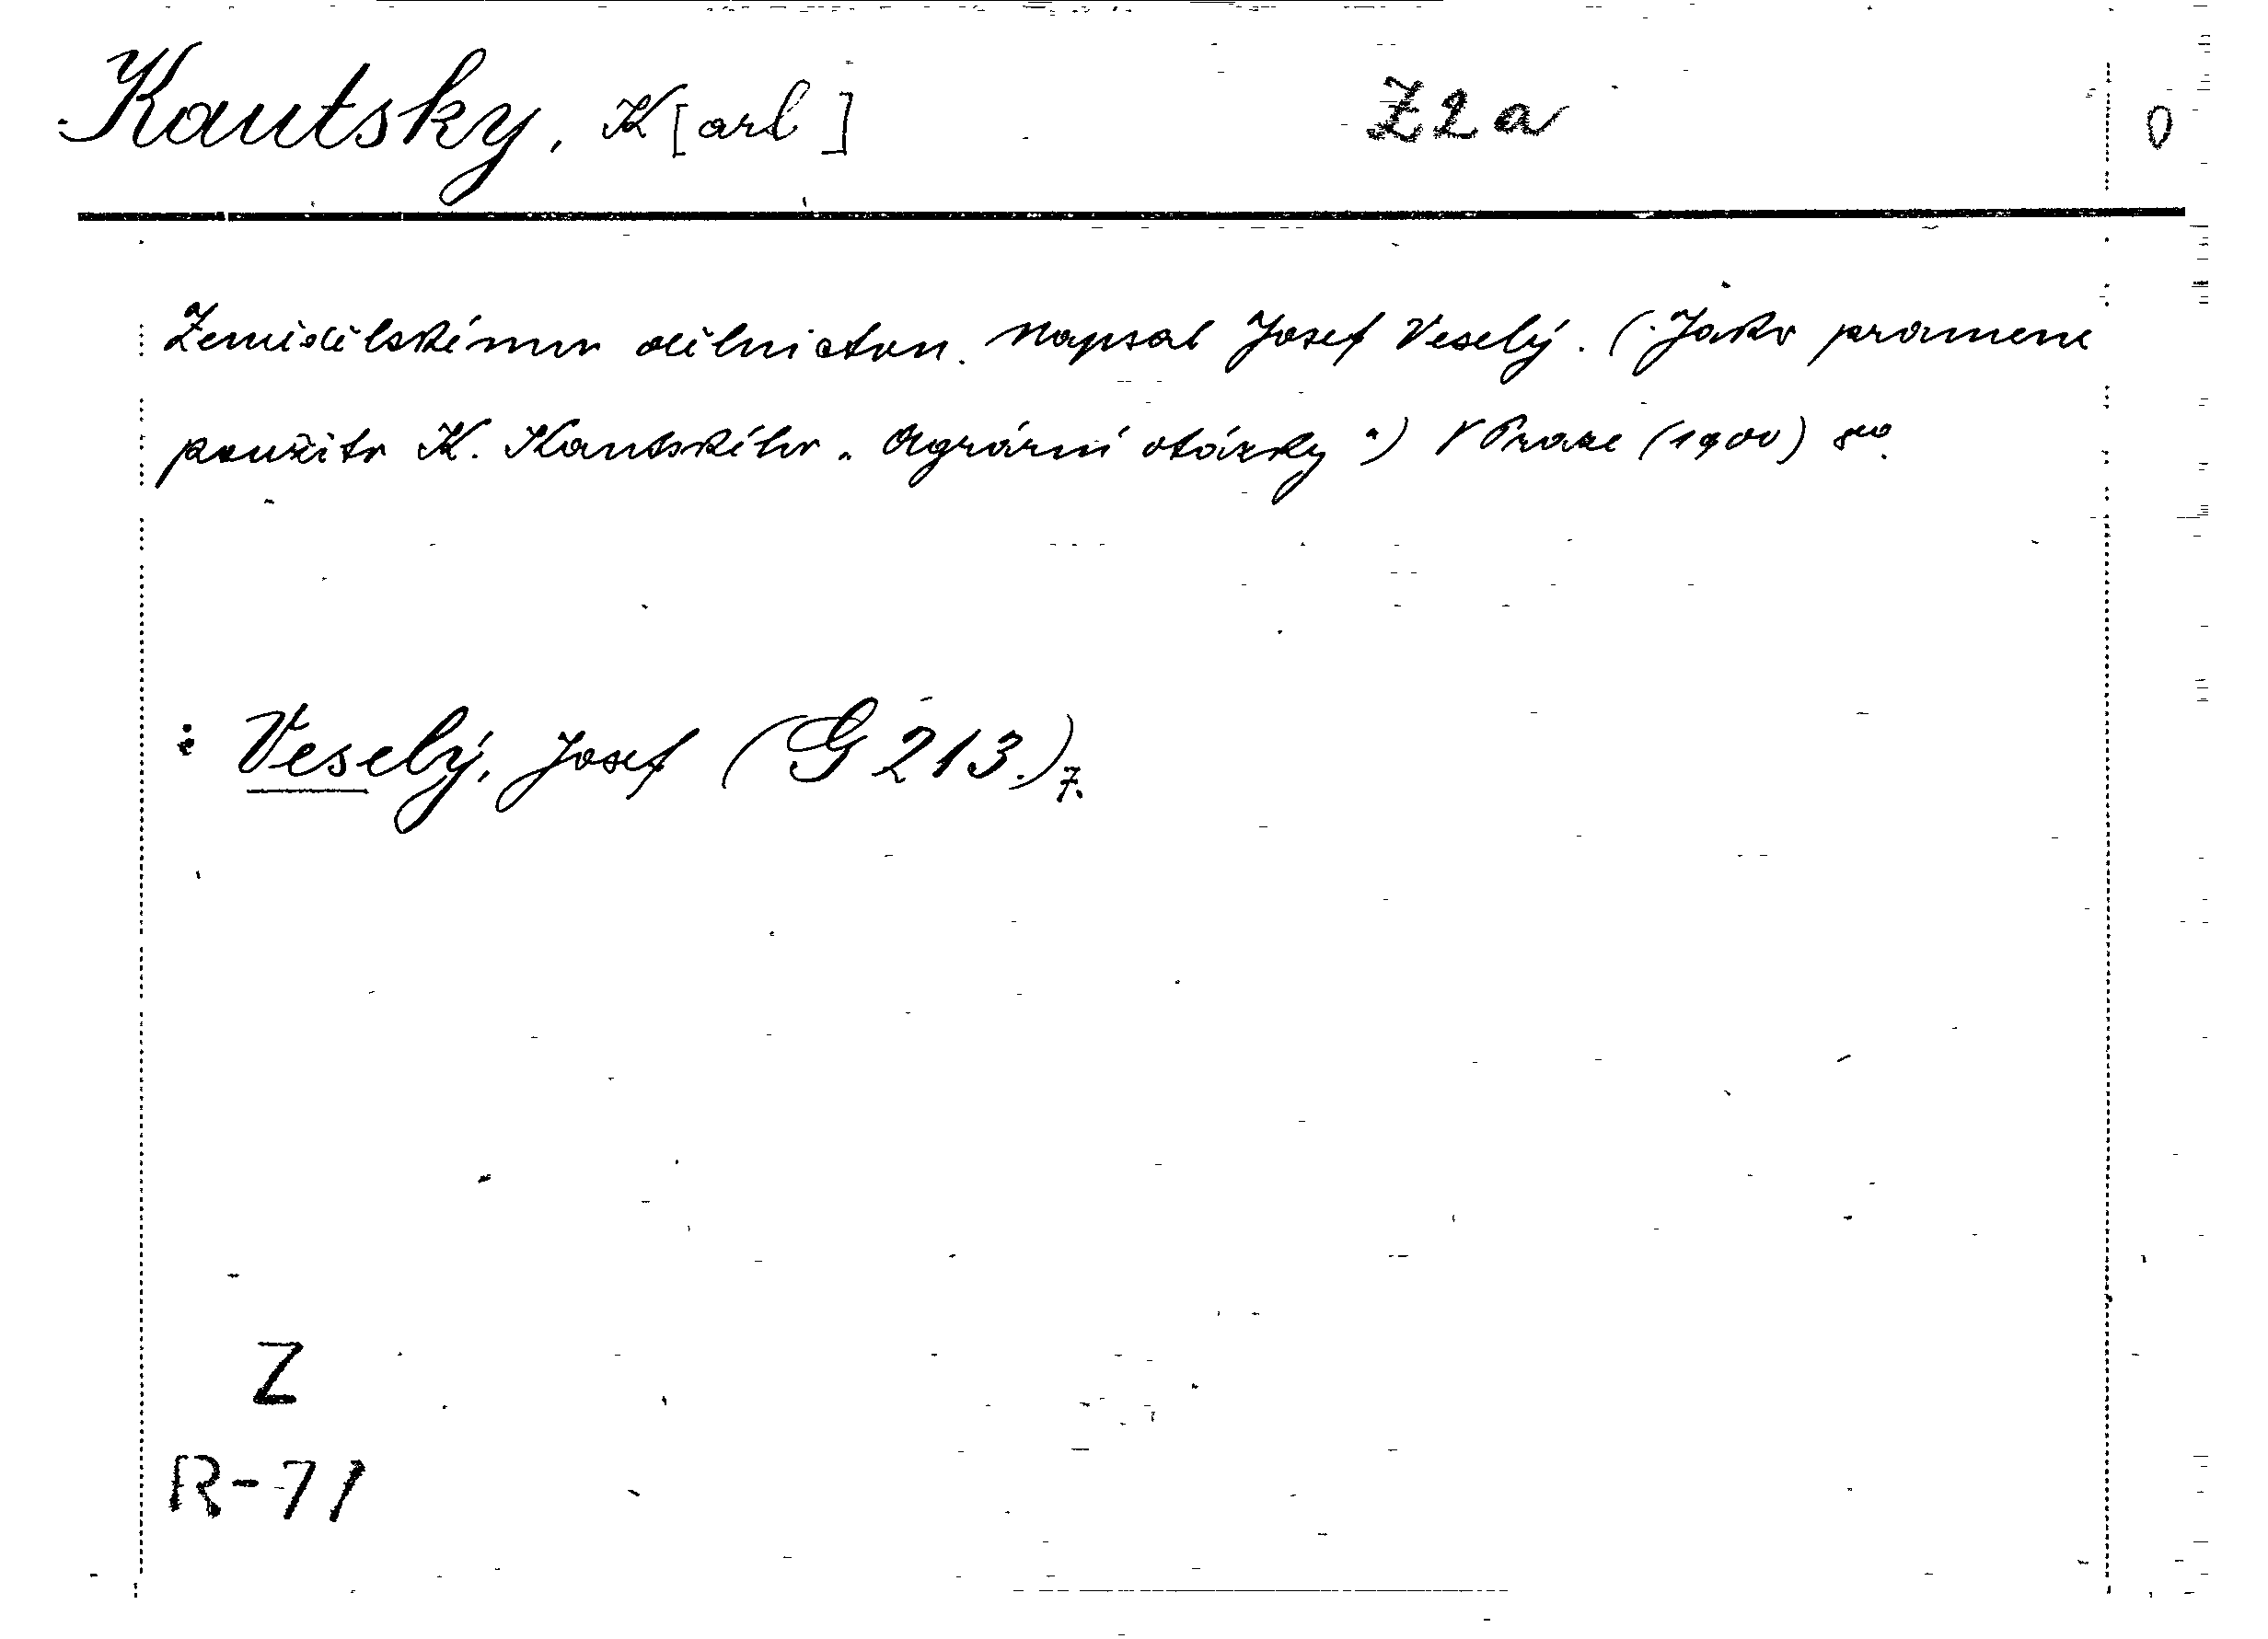 Kautsky, K[arl] Z2a 0
Zemědělskému dělnictvu. Napsal Josef Veselý. (Jako pramene
použito K. Kautského „Agrární otázky“) V Praze (1900) 8vo.
: Veselý, Josef (G 213.) 7.
Z
R-71